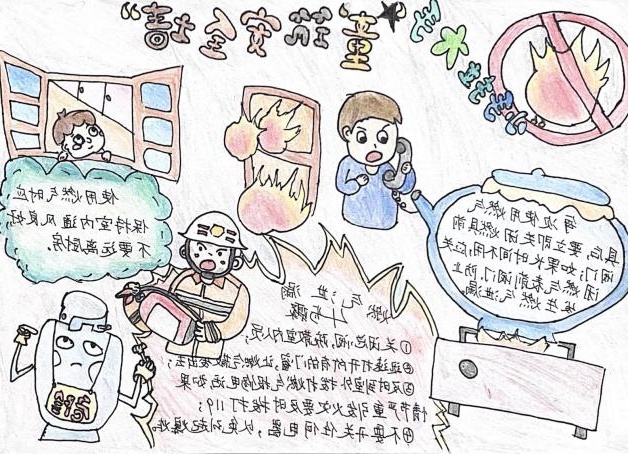 “童”筑安全墙”
使用燃气时应
保持室内通风良好,
不要远离厨房。
每次使用燃气
具后,要立即关闭燃具前
阀门;如果长时间不用,应关
闭燃气表前阀门,防止
发生燃气泄漏。
燃气泄漏
①关闭总阀,疏散室内人员;
②迅速打开所有的门窗,让燃气散发出去;
③及时到室外拨打燃气抢修电话,如果
情节严重引发火灾要及时拨打119;
④不要开关任何电器,以免引起爆炸。